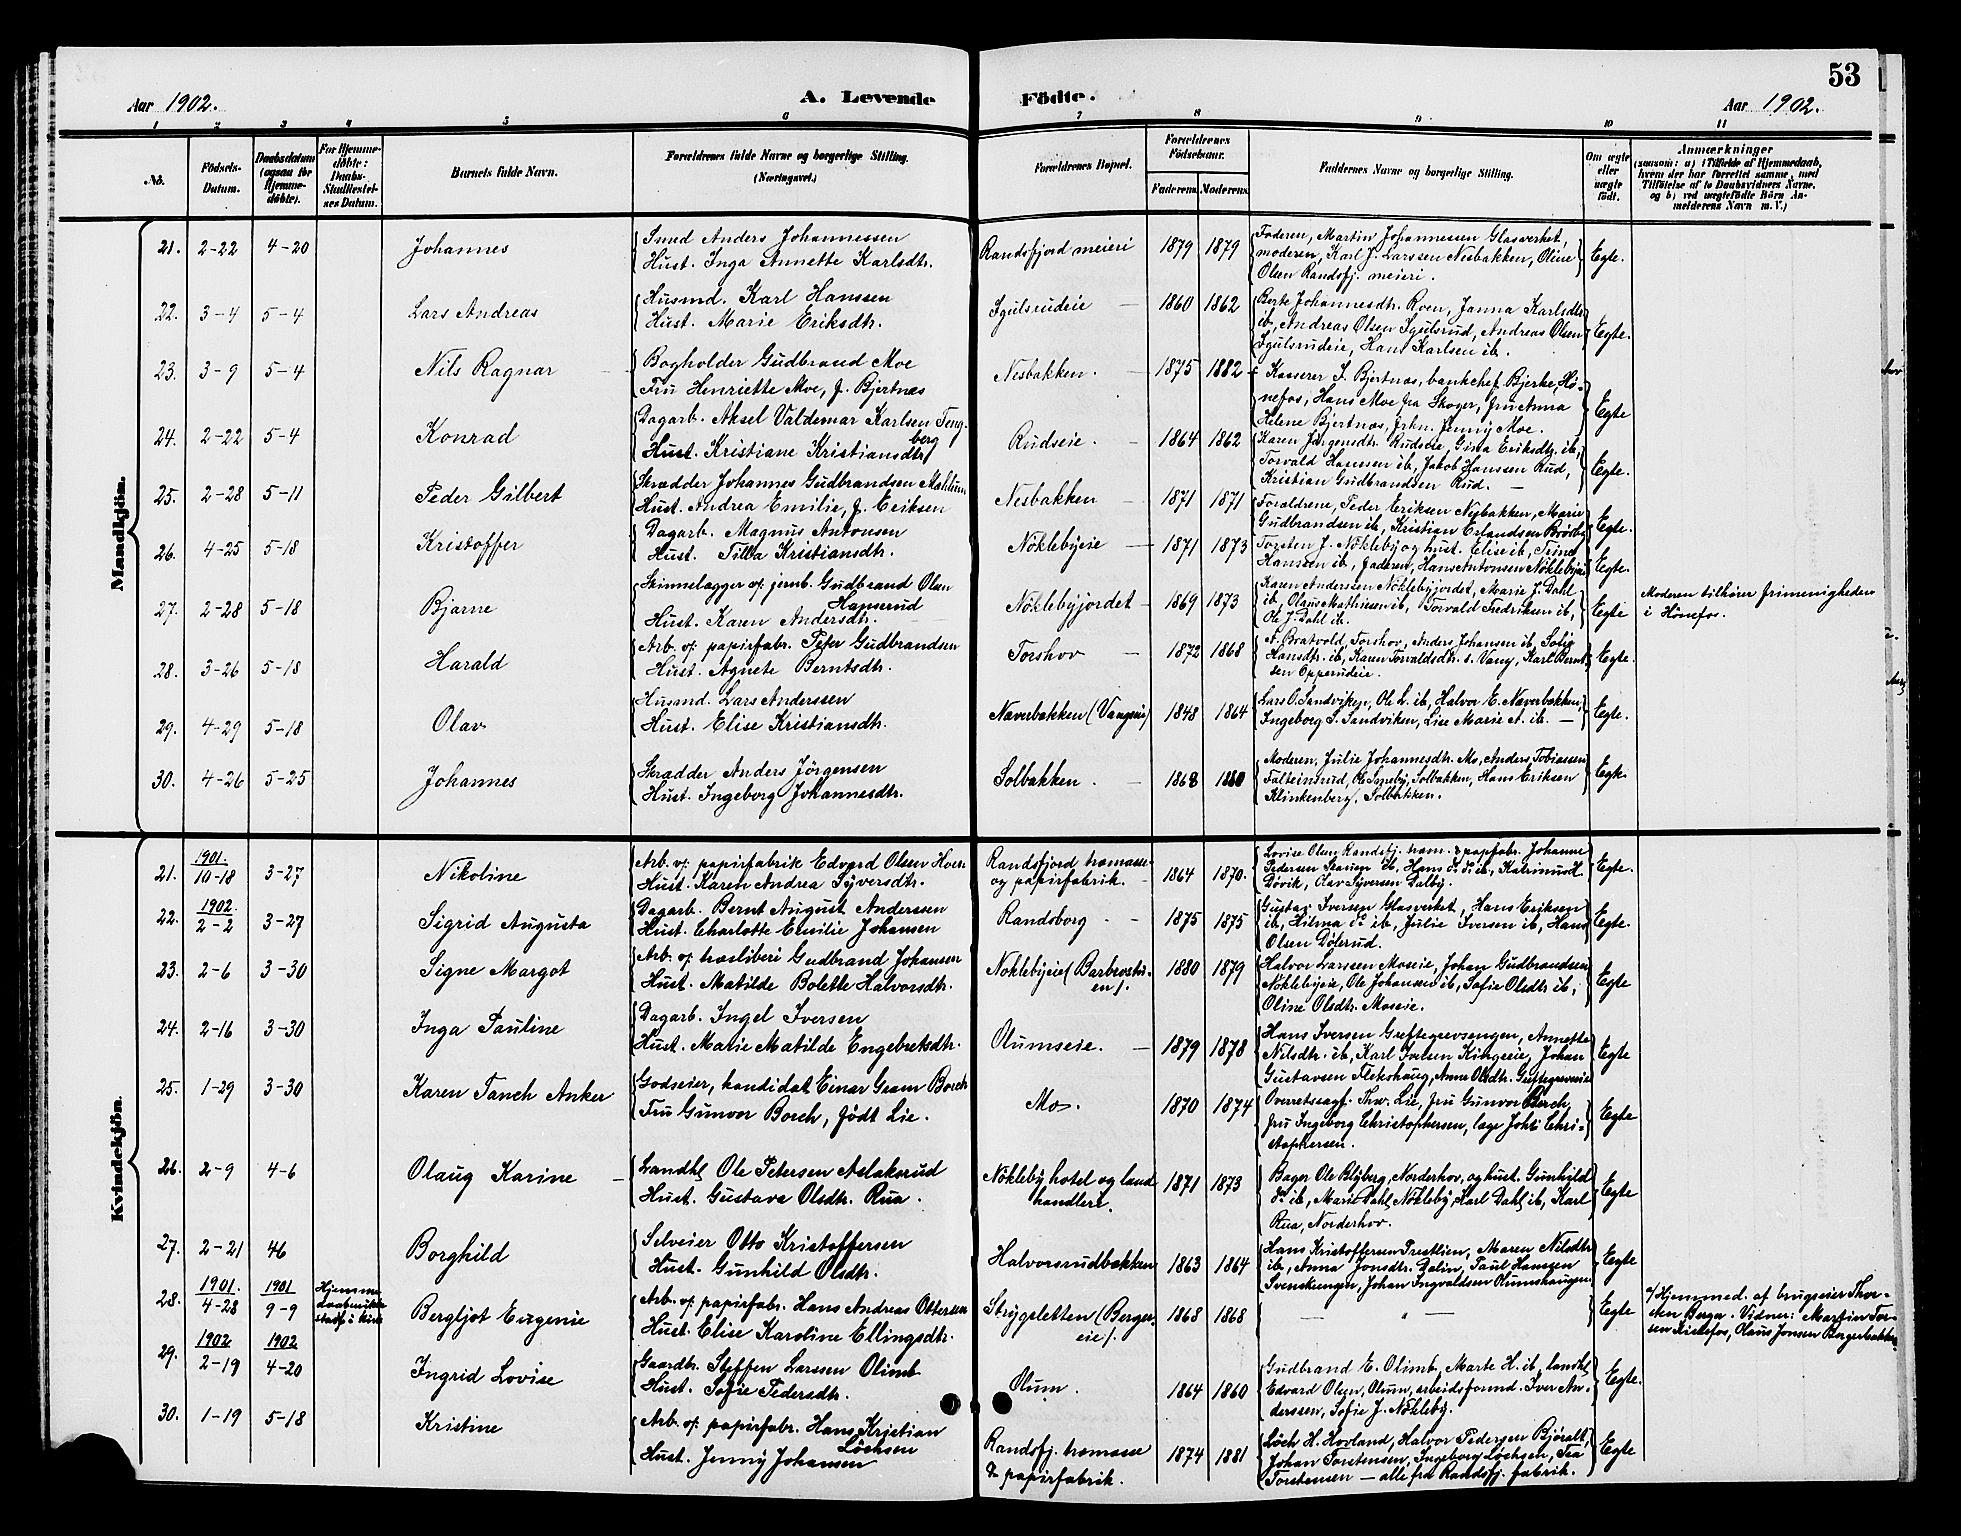 53
Aar 1902.
A. Levende Födte.
Aar 1902.
1 2 3 4 5 6 7 8 9 10 11
No.
Födsels-Datum.
Daabsdatum (ogsaa for Hjemmedöbte).
For Hjemmedöbte: Daabs-Stadfæstelses Datum.
Barnets fulde Navn.
Forældrenes fulde Navne og borgerlige Stilling. (Næringsvei.)
Forældrenes Bopæl.
Forældrenes Födselsaar.
Faderens. Moderens.
Faddernes Navne og borgerlige Stilling.
Om ægte eller uægte født.
Anmærkninger
(saasom: a) i Tilfælde af Hjemmedaab, hvem der har forrettet samme, med Tilföielse af to Daabsvidners Navne, og b) ved uægtefödte Börn Anmelderens Navn m. V.)
Mandkjön.
21. 2-22 4-20 Johannes
Smed Anders Johannessen
Hust. Inga Annette Karlsdtr.
Randsfjord meieri 1879 1879
Faderen, Martin Johannessen Glasverket,
moderen, Karl J. Larssen Nesbakken, Oline
Olsen Randsfj. meieri.
Egte.
22. 3-4 5-4 Lars Andreas
Husmd. Karl Hanssen
Hust. Marie Eriksdtr.
Igulsrudeie 1860 1862
Berte Johannesdtr. Roen, Janna Karlsdtr
ib, Andreas Olsen Igulsrud, Andreas Olsen
Igulsrudeie, Hans Karlsen ib.
Egte.
23. 3-9 5-4 Nils Ragnar
Bogholder Gudbrand Moe
Fru Henriette Moe, f. Bjertnæs
Nesbakken. 1875 1882
Kasserer S. Bjertnæs, bankchef Bjerke, Hö-
nefos, Hans Moe fra Skoger, fru Anna
Helene Bjertnæs, frkn. Jenny Moe.
Egte
24. 2-22 5-4 Konrad
Dagarb. Aksel Valdemar Karlsen Teng-
berg
Hust. Kristiane Kristiansdtr
Rudseie. 1864 1862
Karen Jörgensdtr. Rudseie, Gina Eriksdtr. ib,
Torvald Hanssen ib, Jakob Hanssen Rud,
Kristian Gudbrandsen Rud.
Egte.
25. 2-28 5-11 Peder Gilbert
Skrædder Johannes Gudbrandsen Mæhlum
Hust. Andrea Emilie, f. Eriksen
Nesbakken 1871 1871
Forældrene, Peder Eriksen Nesbakken, Marie
Gudbrandsen ib, Kristian Erlandsen Bråtby
Egte.
26. 4-25 5-18 Kristoffer
Dagarb. Magnus Antonsen
Hust. Tilla Kristiansdtr.
Nöklebyeie 1871 1873
Torsten J. Nökleby og hust. Elise ib, Trine
Hanssen ib, Faderen, Hans Antonsen Nöklebyeie
Egte.
27. 2-28 5-18 Bjarne
Skinnelægger v. jernb. Gudbrand Olsen
Hanserud
Hust. Karen Andersdtr.
Nöklebyjordet 1869 1873
Karen Anderssen Nöklebyjordet, Marie J. Dahl
ib, Olaus Mathisen ib, Torvald Fredriksen ib,
Ole J. Dahl ib.
Egte
Moderen tilhörer frimenigheden
i Hönefos.
28. 3-26 5-18 Harald
Arb. v. papirfabr. Peter Gudbrandsen
Hust. Agnete Berntsdtr.
Torshov 1872 1868
A. Bratvold, Torshov, Anders Johansen ib, Sofie
Hansdtr. ib, Karen Torvaldsdtr. s. Vang, Karl Bernt-
sen Opperudeie.
Egte.
29. 4-29 5-18 Olav
Husmd. Lars Anderssen
Hust. Elise Kristiansdtr.
Næverbakken (Vangseie) 1848 1864
Lars O. Sandviken, Ole L. ib, Halvor E. Næverbakken,
Ingeborg S. Sandviken, Lise Marie A. ib.
Egte.
30. 4-26 5-25 Johannes
Skrædder Anders Jörgensen
Hust. Ingeborg Johannesdtr.
Solbakken. 1868 1880
Moderen, Julie Johannesdtr. Mo, Anders Tobiassen
Falteinsrud, Ole Smeby, Solbakken, Hans Eriksen
Klinkenberg, Solbakken.
Egte.
Kvindekjön.
21. 1901. 10-18 3-27 Nikoline
Arb. v. papirfabrik Edvard Olsen Hoen
Hust. Karen Andrea Syversdtr.
Randsfjord træmasse-
og papirfabrik. 1864 1870.
Lovise Olsen Randsfj. træm. & papfabr. Johanne
Pedersen ib, Hans
Dövik, Olav Syversen Dalby.
Egte.
22. 1902. 2-2 3-27 Sigrid Augusta
Dagarb. Bernt August Anderssen
Hust. Charlotte Emilie Johansen
Randsborg 1875 1875
Gustav Iversen Glasverket, Hans Eriksen
ib, Hilma do ib, Julie Iversen ib, Hans
Olsen Dölerud.
Egte.
23. 2-6 3-30 Signe Margot
Arb. v. træsliberi Gudbrand Johansen
Hust. Matilde Bolette Halvorsdtr.
Nöklebyeie (Barbrostu-
en). 1880 1879
Halvor Larssen Moseie, Johan Gudbrandsen
Nöklebyeie, Ole Johansen ib, Sofie Olsdtr ib,
Oline Olsdtr. Moseie.
Egte
24. 2-16 3-30 Inga Pauline
Dagarb. Ingel Iversen
Hust. Marie Matilde Engebretsdtr.
Olumseie. 1879 1878
Hans Iversen Greftegrevsengen, Annette
Nilsdtr. ib, Karl Iversen Kingeeie, Johan
Gustavsen Flekshaug, Anne Olsdtr. Greftegreveeie
Egte
25. 1-29 3-30 Karen Tanch Anker
Godseier, kandidat Einar Gram Borch
Fru Gunvor Borch, født Lie.
Mo. 1870 1874
Overretssagf. Thv. Lie, fru Gunvor Borch
fru Ingeborg Christophersen, læge Johs Chri-
stophersen.
Egte
26. 2-9 4-6 Olaug Karine
Landhl. Ole Petersen Aslakerud
Hust. Gustava Olsdtr. Rua.
Nökleby hotel og land
handleri. 1871 1873
Bager Ole Blyberg, Norderhov, og hust. Gunhild
do ib, Marie Dahl, Nökleby, Karl Dahl ib, Karl
Rua, Norderhov.
Egte
27. 2-21 46 Borghild
Selveier Otto Kristoffersen
Hust. Gunhild Olsdtr.
Halvorsrudbakken 1863 1864
Hans Kristoffersen Prestlien, Maren Nilsdtr
ib, Anna Jonsdtr. Dalin, Paul Hanssen
Svenskengen, Johan Ingvaldsen Olumshaugen
Egte
28. 1901. 4-28 1901 9-9 Hjemme-
daab
stadf. i kirke
Bergljot Eugenie
Arb. v. papirfabr. Hans Andreas Ottersen
Hust. Elise Karoline Ellingsdtr.
Strygsletten (Berger-
eie). 1868 1868
— " —
Egte
Hjemmed. af brugseier Thor-
sten Berga. Vidner: Martin Tor-
sen Kistefos, Olaus Jonsen Bergerbakken
29. 1902 2-19 1902 4-20 Ingrid Lovise
Gaardbr. Steffen Larssen Olimb
Hust. Sofie Pedersdtr.
Olum. 1864 1860
Gudbrand E. Olimb, Marte H. ib, landhl
Edvard Olsen, Olum, arbeidsformd. Iver An-
derssen, Sofie J. Nökleby.
Egte.
30. 1-19 5-18 Kristine
Arb. v. papirfabr. Hans Kristian
Löchsen
Hust. Jenny Johansen
Randsfj. træmasse
& papirfabrik. 1874 1881
Löch H. Hovland, Halvor Pedersen Björalt,
Johan Torstensen, Ingeborg Löchsen, Tea
Torstensen — alle fra Randsfj. fabrik.
Egte